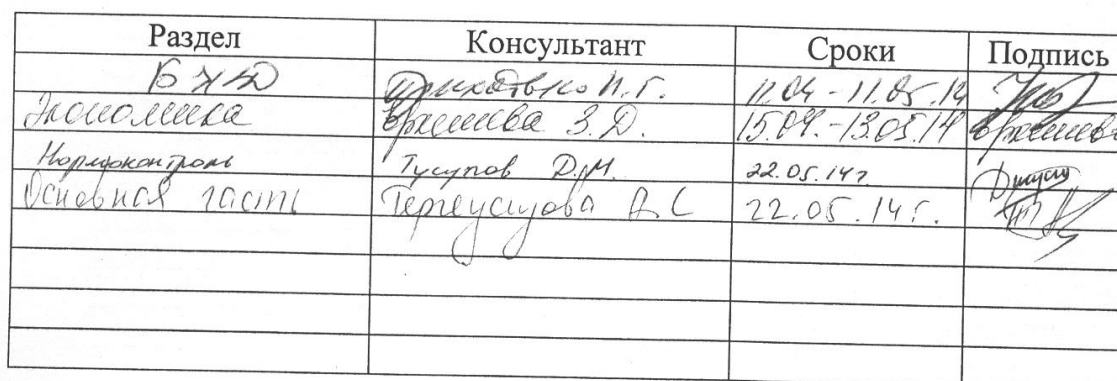 Раздел Консультант Сроки Подпись
БЖД Приходько Н.Г. 11.04 - 11.05.14
Экономика Еркешева З.Д. 15.04.-13.05.14 Еркешева
Нормоконтроль Тусупов Д.М. 22.05.14г
Основная часть Тергеусизова А С 22.05.14г.